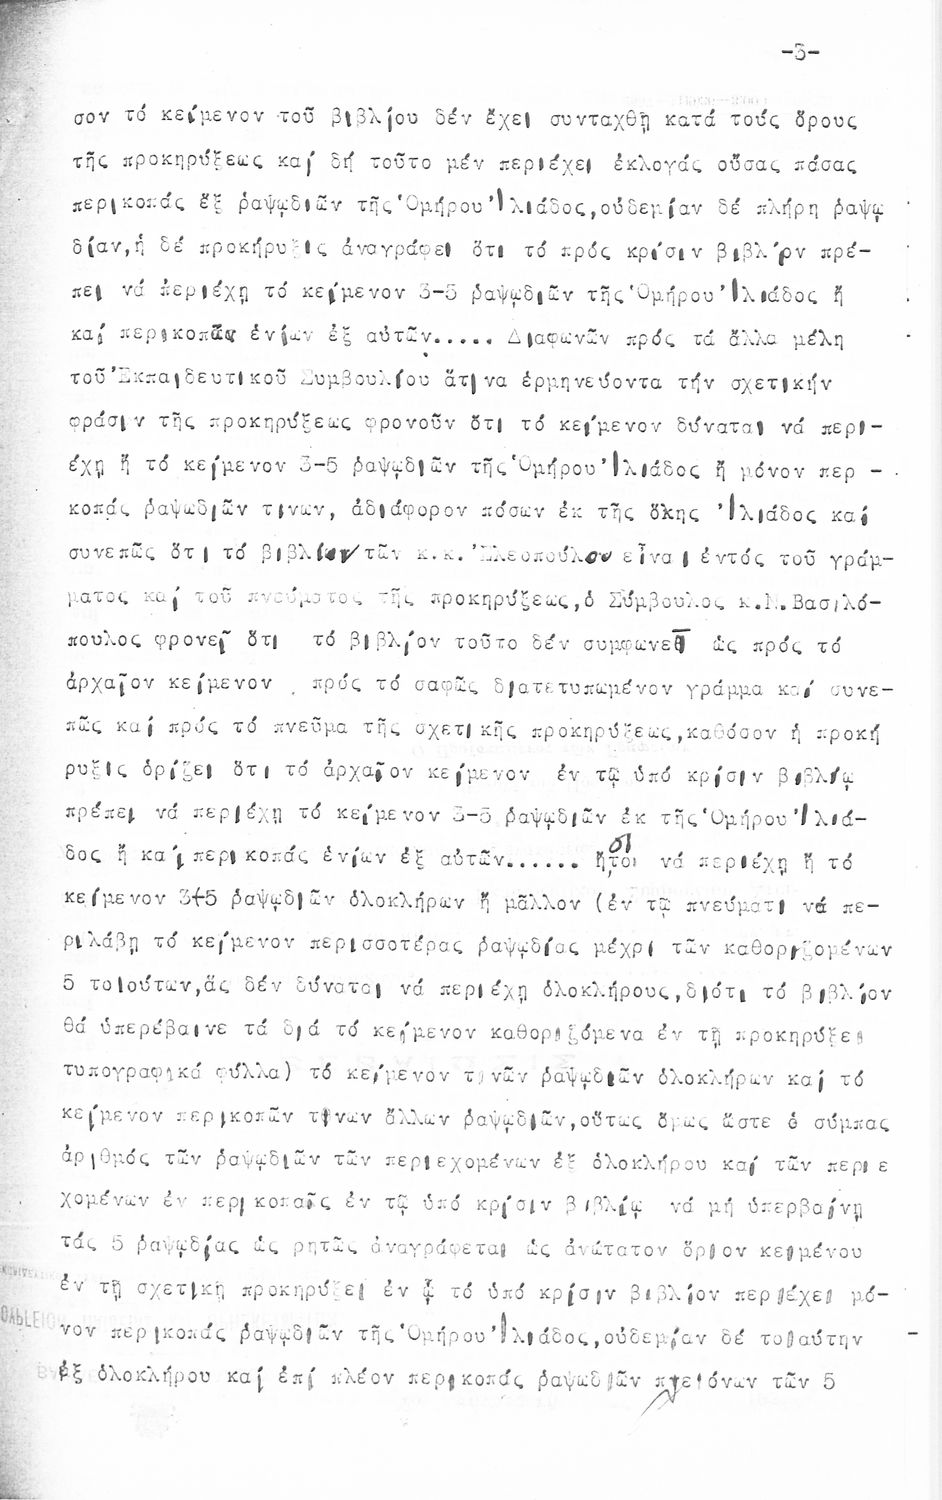 -3-
σον τό κείμενον τοῦ βιβλίου δέν ἔχει συνταχθῆ κατά τούς ὅρους
τῆς προκηρύξεως καί δή τοῦτο μέν περιέχει ἐκλογάς οὔσας πάσας
περικοπάς ἔξ ῥαψῳδιῶν τῆς Ὁμήρου Ἰλιάδος,οὐδεμίαν δέ πλήρη ῥαψῳ
δίαν,ἡ δέ προκήρυξις ἀναγράφει ὅτι τό πρός κρίσιν βιβλίον πρέ-
πει νά περιέχῃ τό κείμενον 3-5 ῥαψῳδιῶν τῆς Ὁμήρου Ἰλιάδος ἤ
καί περικοπάς ἐνίων ἐξ αὐτῶν..... Διαφωνῶν πρός τά ἄλλα μέλη
τοῦ Ἐκπαιδευτικοῦ Συμβουλίου ἅτινα ἑρμηνεύοντα τήν σχετικήν
φράσιν τῆς προκηρύξεως φρονοῦν ὅτι τό κείμενον δύναται νά περι-
έχῃ ἤ τό κείμενον 3-5 ῥαψῳδιῶν τῆς Ὁμήρου Ἰλιάδος ἤ μόνον περ -
κοπάς ῥαψωδιῶν τινων, ἀδιάφορον πόσων ἐκ τῆς ὅλης Ἰλιάδος καί
συνεπῶς ὅτι τό βιβλίον τῶν κ.κ. Ἐλεοπούλου εἶναι ἐντός τοῦ γράμ-
ματος καί τοῦ πνεύματος τῆς προκηρύξεως,ὁ Σύμβουλος κ.Ν.Βασιλό-
πουλος φρονεῖ ὅτι τό βιβλίον τοῦτο δέν συμφωνεῖ ὡς πρός τό
ἀρχαῖον κείμενον , πρός τό σαφῶς διατετυπωμένον γράμμα καί συνε-
πῶς καί πρός τό πνεῦμα τῆς σχετικῆς προκηρύξεως,καθόσον ἡ προκή
ρυξις ὁρίζει ὅτι τό ἀρχαῖον κείμενον ἐν τῷ ὑπό κρίσιν βιβλίῳ
πρέπει νά περιέχῃ τό κείμενον 3-5 ῥαψῳδιῶν ἐκ τῆς Ὁμήρου Ἰλιά-
δος ἤ καί περικοπάς ἐνίων ἐξ αὐτῶν...... ἤτοι νά περιέχῃ ἤ τό
κείμενον 3+5 ῥαψῳδιῶν ὁλοκλήρων ἤ μᾶλλον (ἐν τῷ πνεύματι νά πε-
ριλάβῃ τό κείμενον περισσοτέρας ῥαψῳδίας μέχρι τῶν καθοριζομένων
5 τοιούτων,ἅς δέν δύναται νά περιέχῃ ὁλοκλήρους,διότι τό βιβλίον
θά ὑπερέβαινε τά διά τό κείμενον καθοριζόμενα ἐν τῇ προκηρύξει
τυπογραφικά φύλλα) τό κείμενον τινῶν ῥαψῳδιῶν ὁλοκλήρων καί τό
κείμενον περικοπῶν τίνων ἄλλων ῥαψῳδιῶν,οὕτως ὅμως ὥστε ὁ σύμπας
ἀριθμός τῶν ῥαψῳδιῶν τῶν περιεχομένων ἐξ ὁλοκλήρου καί τῶν περιε
χομένων ἐν περικοπαῖς ἐν τῷ ὑπό κρίσιν βιβλίῳ νά μή ὑπερβαίνῃ
τάς 5 ῥαψῳδίας ὡς ρητῶς ἀναγράφεται ὡς ἀνώτατον ὅριον κειμένου
ἐν τῇ σχετικῇ προκηρύξει ἐν ᾧ τό ὑπό κρίσιν βιβλίον περιέχει μό-
νον περικοπάς ῥαψῳδιῶν τῆς Ὁμήρου Ἰλιάδος,οὐδεμίαν δέ τοιαύτην
ἐξ ὁλοκλήρου καί ἐπί πλέον περικοπάς ῥαψωδιῶν πλειόνων τῶν 5